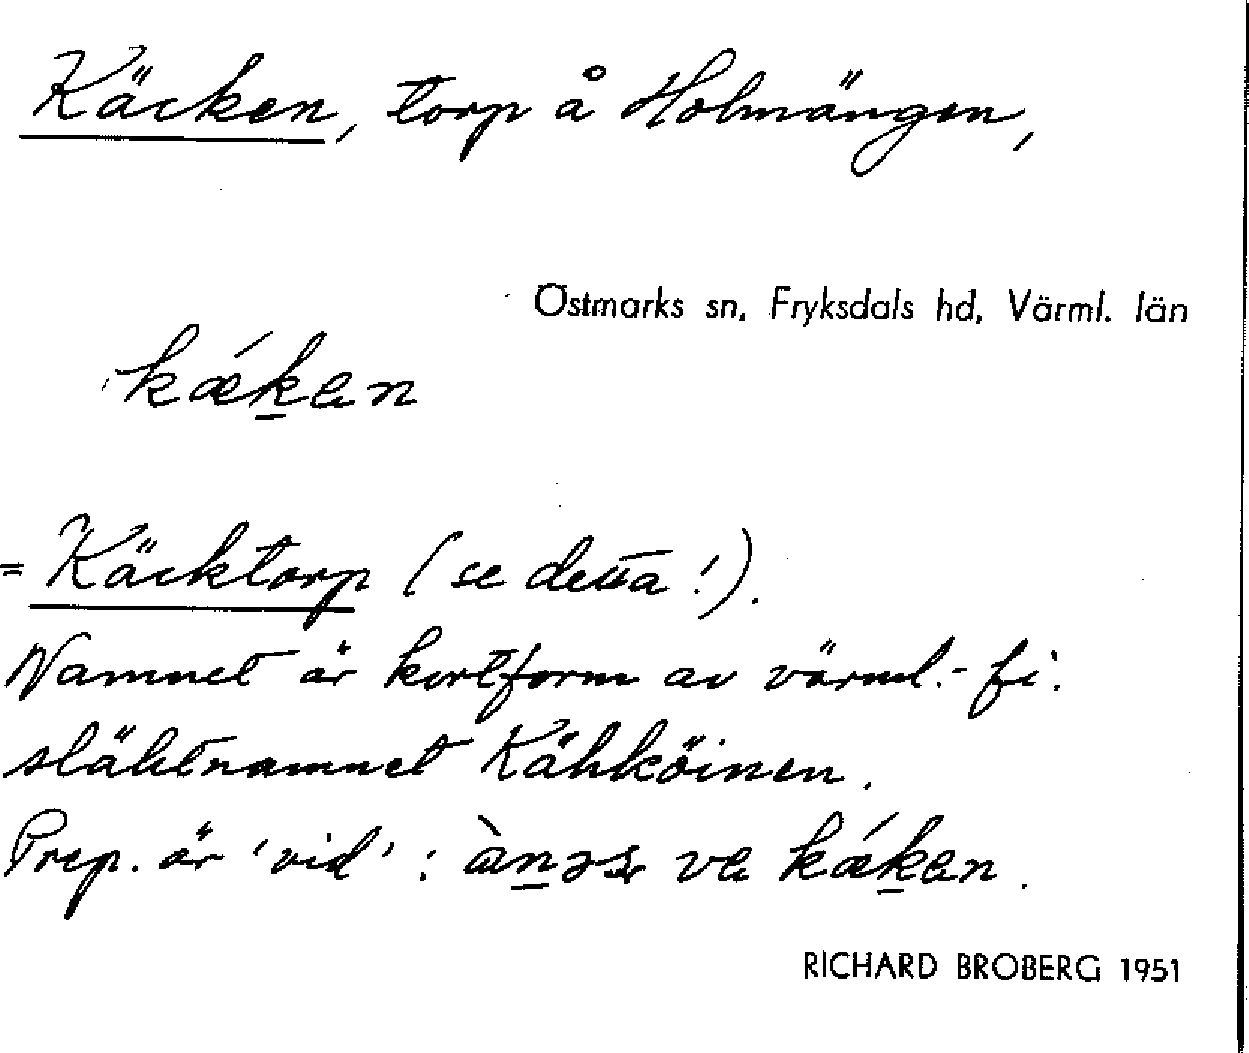 Käcken, torp å Holmängen,
Östmarks sn, Fryksdals hd, Värml. län
kǽk̲en
= Käcktorp (se detta!).
Namnet är kortform av värml.-fi.
släktnamnet Kähköinen.
Prep. är 'vid' : ve kǽk̲en.
RICHARD BROBERG 1951